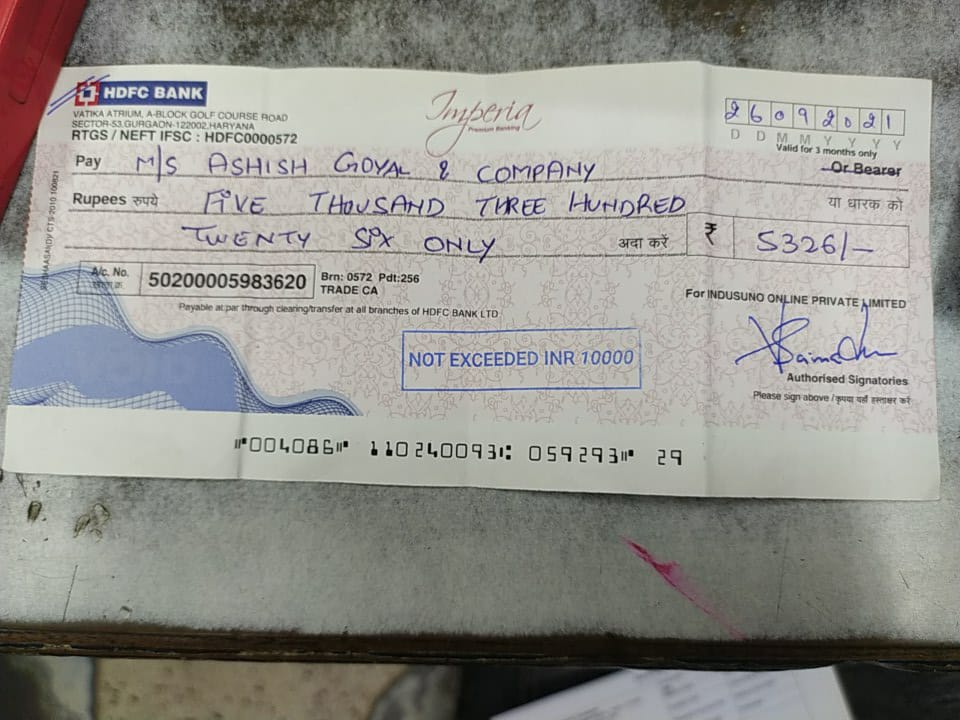 HDFC BANK
VATIKA ATRIUM, A-BLOCK GOLF COURSE ROAD
SECTOR-53, GURGAON-122002, HARYANA
RTGS / NEFT IFSC : HDFC0000572
Imperia
Premium Banking
26092021
D D M M Y Y Y Y
Valid for 3 months only
Pay M/S ASHISH GOYAL & COMPANY Or Bearer
Rupees रुपये FIVE THOUSAND THREE HUNDRED या धारक को
TWENTY SIX ONLY अदा करें ₹ 5326/-
A/c. No. 50200005983620 Brn: 0572 Pdt:256
TRADE CA
Payable at par through clearing/transfer at all branches of HDFC BANK LTD
For INDUSUNO ONLINE PRIVATE LIMITED
NOT EXCEEDED INR 10000
Authorised Signatories
Please sign above / कृपया यहाँ हस्ताक्षर करें
⑈004086⑈ 110240093⑆ 059293⑈ 29